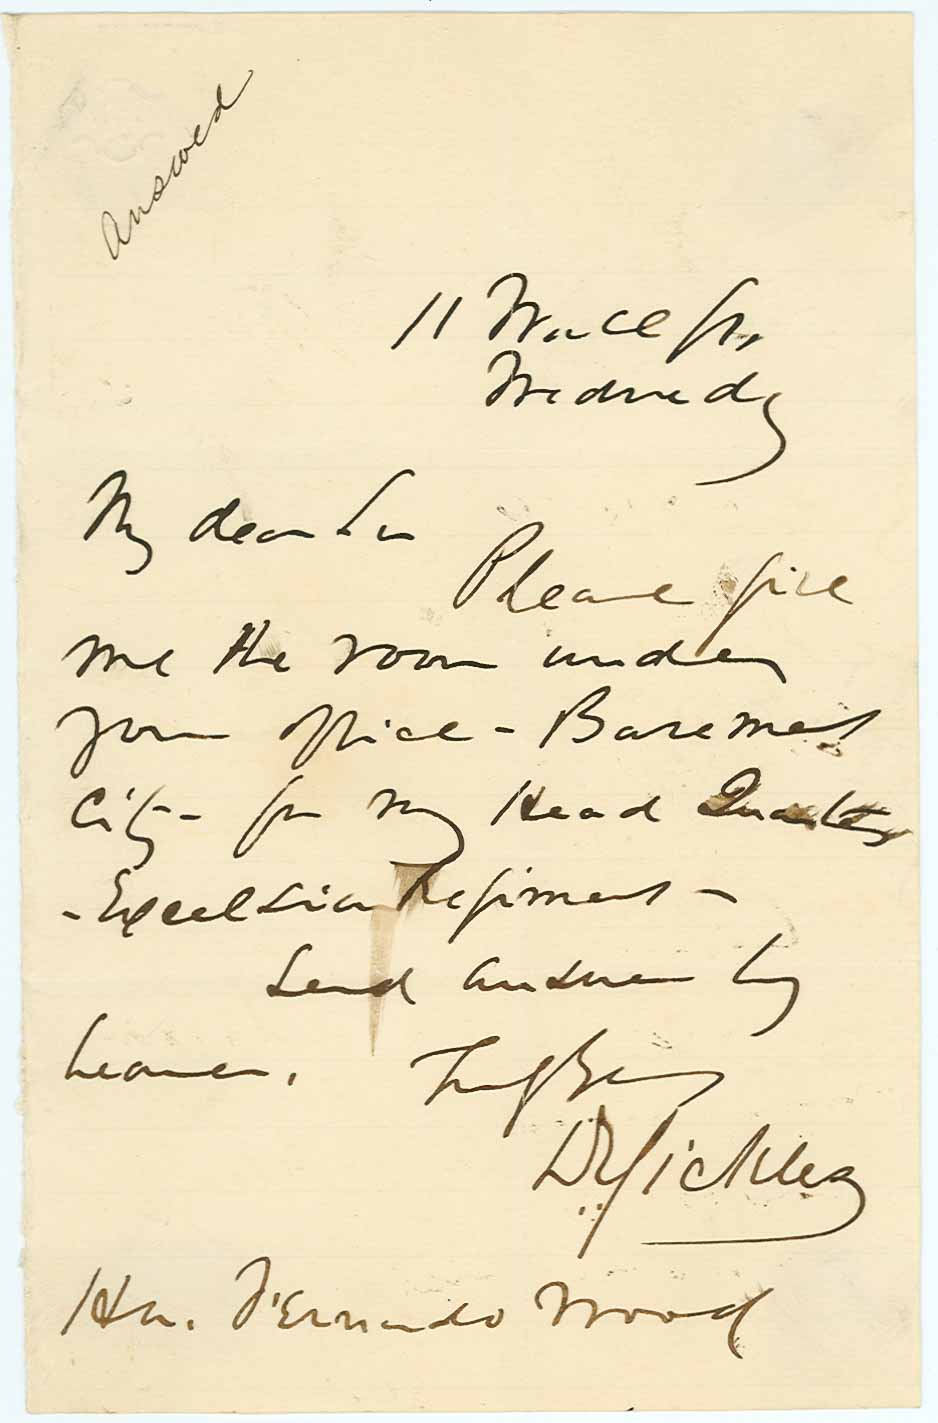 Answed
11 Wall St,
Wednesdy
My dear Sir
Please give
me the room under
your office - Basement
City - for my Head Quarters
- Excelsior Regiment -
Send answer by
bearer.
DE Sickles
Hon. Fernando Wood